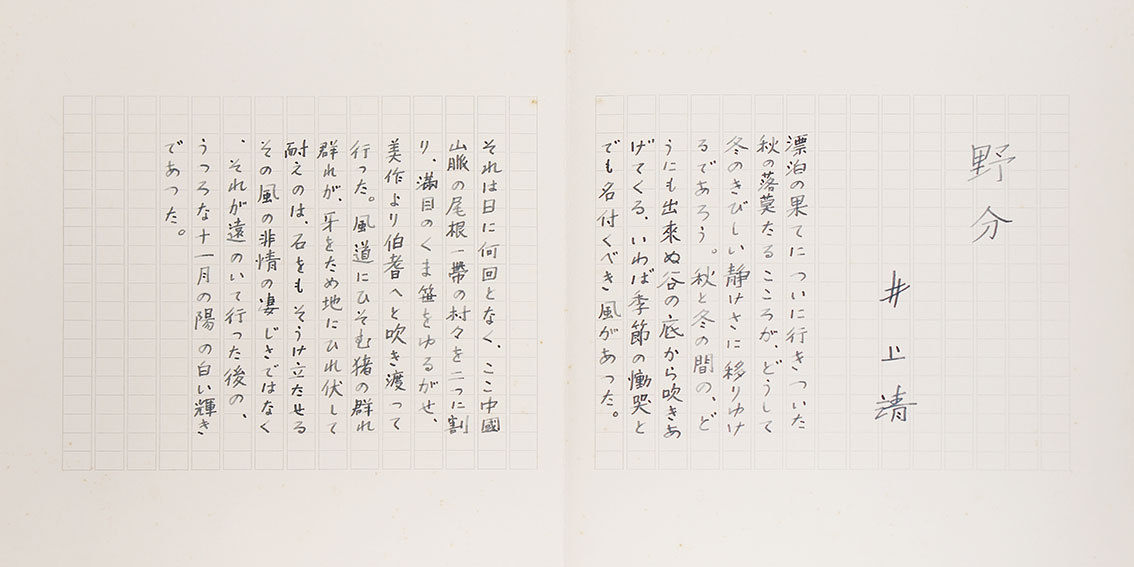 野分
井上靖
漂泊の果てについに行きついた
秋の落莫たるこころが、どうして
冬のきびしい静けさに移りゆけ
るであろう。秋と冬の間の、ど
うにも出来ぬ谷の底から吹きあ
げてくる、いわば季節の慟哭と
でも名付くべき風があった。
それは日に何回となく、ここ中國
山脈の尾根一帯の村々を二つに割
り、満目のくま笹をゆるがせ、
美作より伯耆へと吹き渡って
行った。風道にひそむ猪の群れ
群れが、牙をため地にひれ伏して
耐えのは、石をもそうけ立たせる
その風の非情の凄じさではなく
、それが遠のいて行った後の、
うつろな十一月の陽の白い輝き
であった。